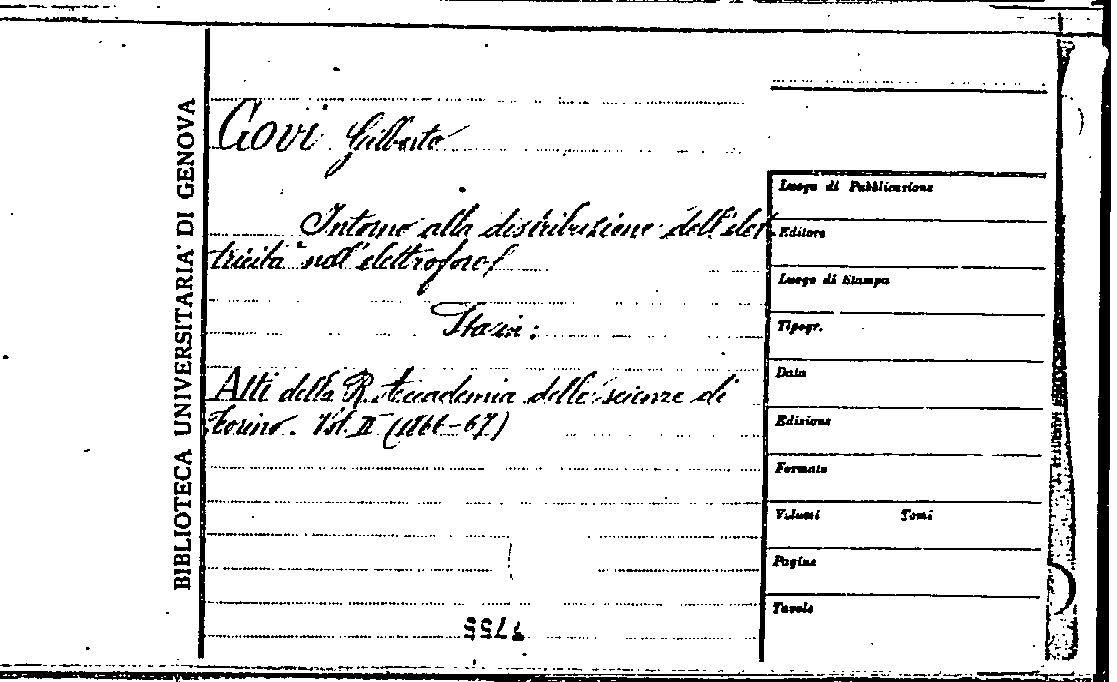 BIBLIOTECA UNIVERSITARIA' DI GENOVA
Govi Gilberto
Intorno alla distribuzione dell'elet-
tricità nell'elettroforo/
Sta in:
Atti della R. Accademia delle scienze di
Torino. Vol. II (1866-67)
Luogo di Pubblicazione
Editore
Luogo di Stampa
Tipogr.
Data
Edizione
Formato
Volumi Tomi
Pagine
Tavole